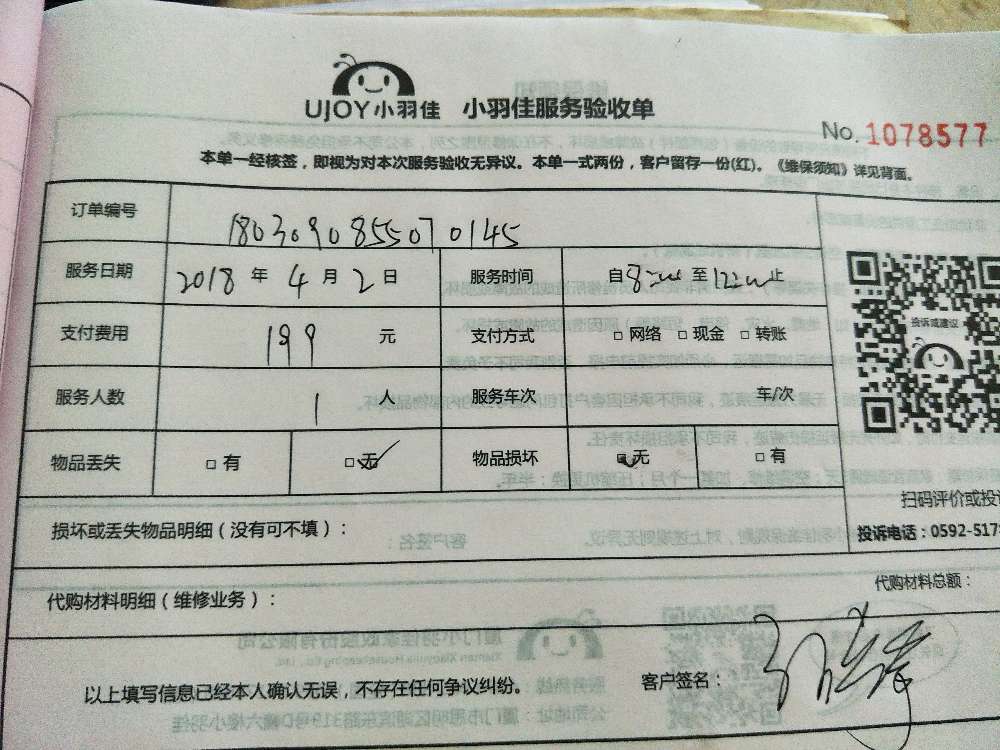 UJOY小羽佳 小羽佳服务验收单
No. 1078577
本单一经核签，即视为对本次服务验收无异议。本单一式两份，客户留存一份(红)。《维保须知》详见背面。
订单编号 1803090855070145
服务日期 2018 年 4 月 2 日 服务时间 自 至 止
支付费用 199 元 支付方式 □ 网络 □ 现金 □ 转账
服务人数 1 人 服务车次 车/次
物品丢失 □ 有 □ 无 物品损坏 □ 无 □ 有
投诉或建议
扫码评价或投
损坏或丢失物品明细（没有可不填）：
投诉电话：0592-517
代购材料明细（维修业务）：
代购材料总额：
以上填写信息已经本人确认无误，不存在任何争议纠纷。 客户签名：